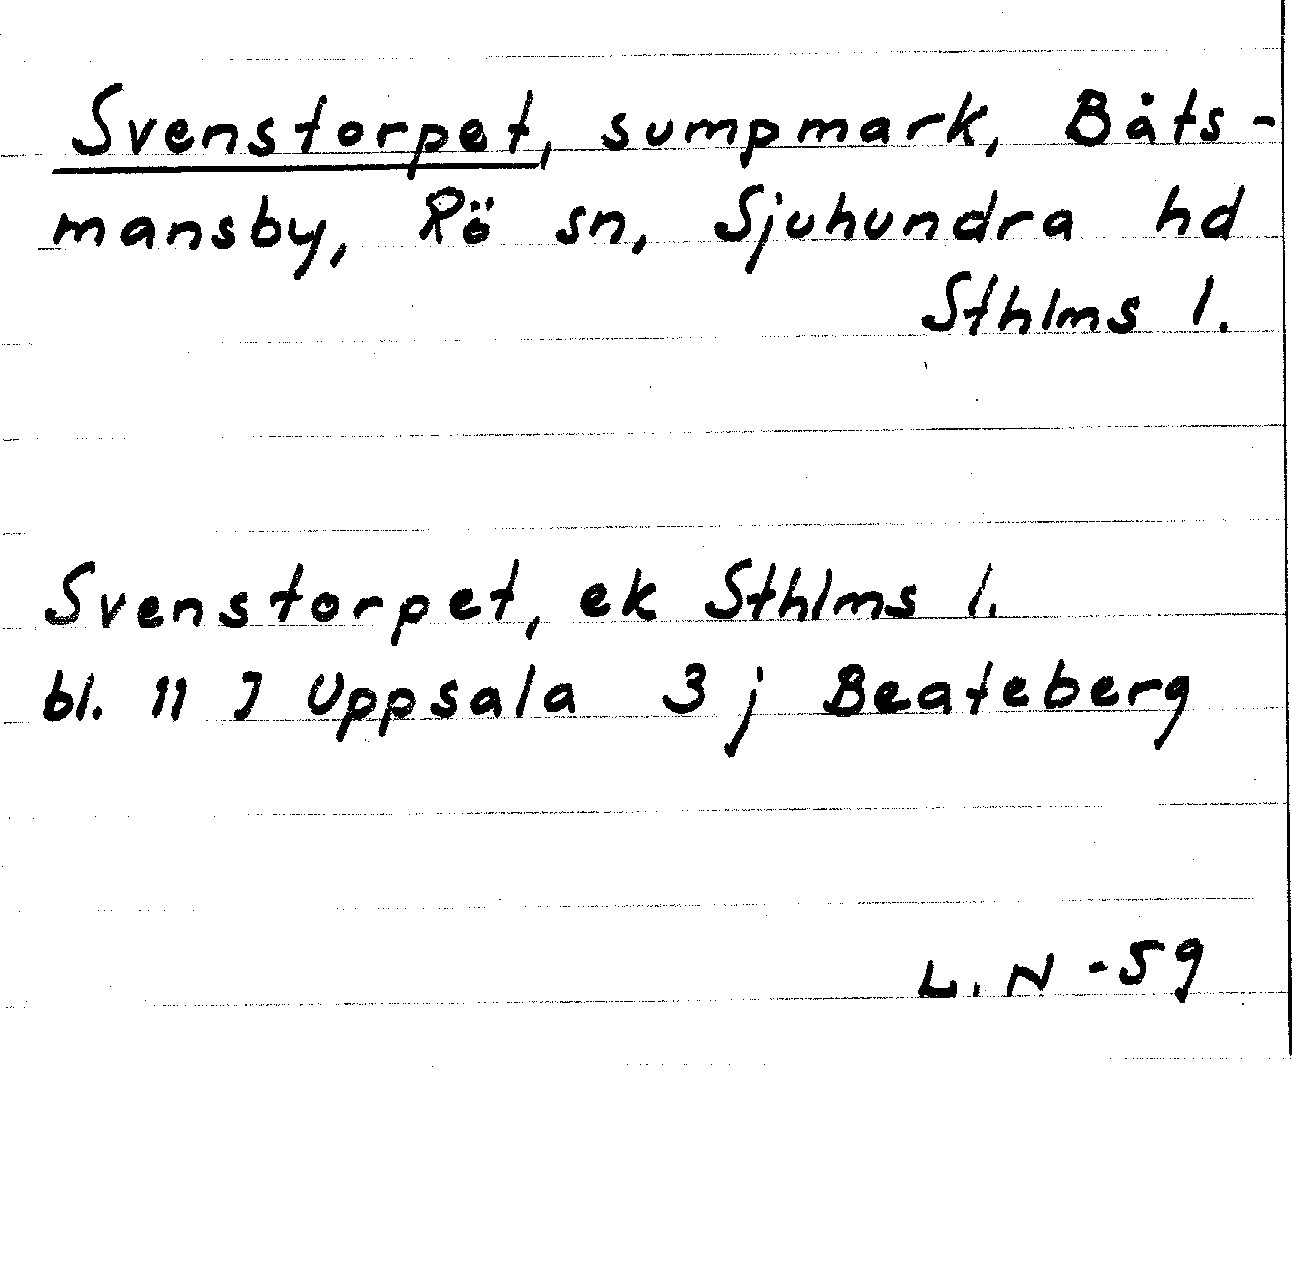 Svenstorpet, sumpmark, Båts-
mansby, Rö sn, Sjuhundra hd
Sthlms l.
Svenstorpet, ek Sthlms l.
bl. 11 J Uppsala 3 j Beateberg
L. N -59